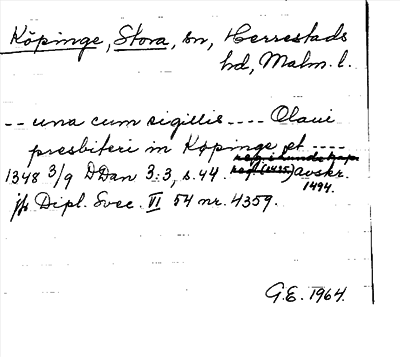 Köpinge, Stora, sn, Herrestads
hd, Malm. l.
-- una cum sigillis ---- Olaui
presbiteri in Køpinge et ----
1348 3/9 DDan 3:3, s. 44. avskr.
1494.
jfr Dipl. Svec. VI 54 nr. 4359.
G.E. 1964.